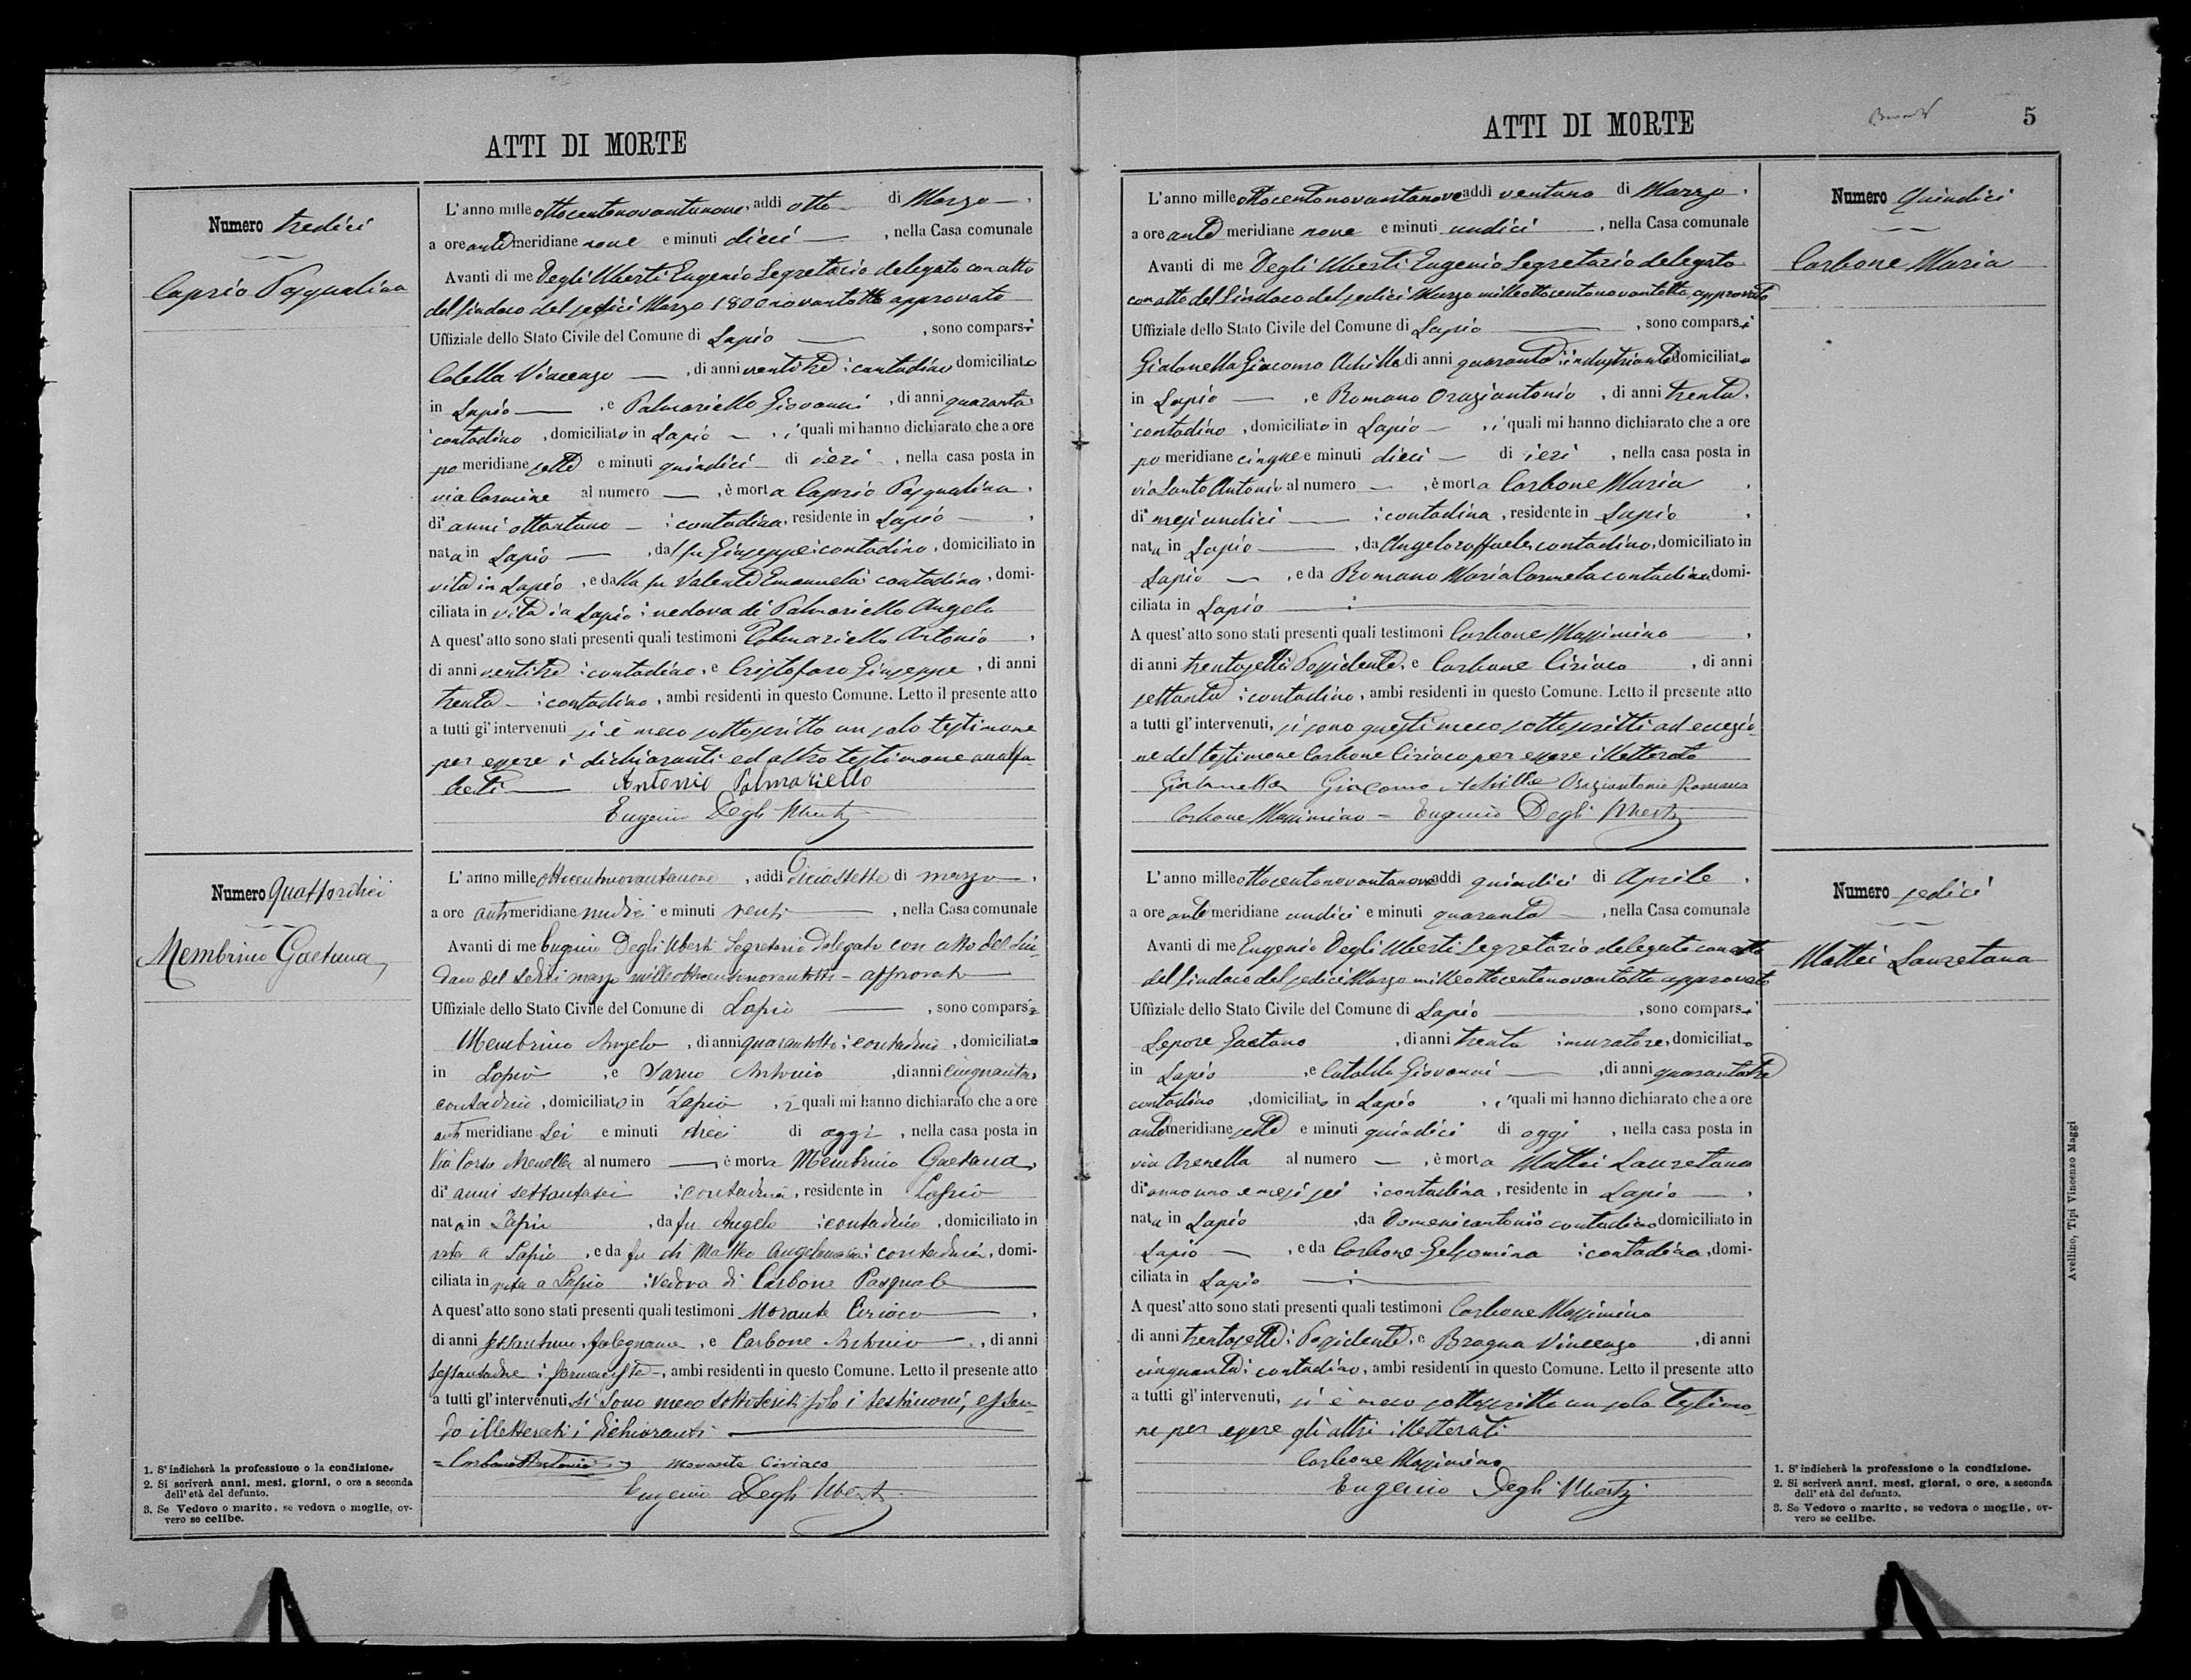 ATTI DI MORTE
Numero tredici
Caprio Pasqualina
L'anno mille ottocentonovantanove, addì otto di Marzo.
a ore ante meridiane nove e minuti dieci, nella Casa comunale
Avanti di me Degli Uberti Eugenio Segretario delegato con atto
del Sindaco del sedici Marzo 1800novantotto approvato
Uffiziale dello Stato Civile del Comune di Lapio, sono comparsi
Colella Vincenzo, di anni ventitre contadino domiciliato
in Lapio, e Palmariello Giovanni, di anni quaranta
contadino, domiciliato in Lapio, i quali mi hanno dichiarato che a ore
po meridiane sette e minuti quindici di ieri, nella casa posta in
via Carmine al numero —, è morta Caprio Pasqualina,
di anni ottantuno contadina, residente in Lapio,
nata in Lapio, da fu Giuseppe contadino, domiciliato in
vita in Lapio, e dalla fu Valente Emanuela contadina, domi-
ciliata in vita in Lapio vedova di Palmariello Angelo
A quest'atto sono stati presenti quali testimoni Palmariello Antonio,
di anni ventitre contadino, e Cristofaro Giuseppe, di anni
trenta contadino, ambi residenti in questo Comune. Letto il presente atto
a tutti gl'intervenuti si è meco sottoscritto un solo testimone
per essere i dichiaranti ed altro testimone analfa-
beti
Antonio Palmariello
Eugenio Degli Uberti
Numero Quattordici
Membrino Gaetana
L'anno mille ottocentonovantanove, addì Diciassette di marzo.
a ore anti meridiane undici e minuti venti, nella Casa comunale
Avanti di me Eugenio Degli Uberti Segretario Delegato con atto del Sin-
daco del sedici marzo milleottocentonovantotto - approvato
Uffiziale dello Stato Civile del Comune di Lapio, sono comparsi
Membrino Angelo, di anni quarantotto contadino, domiciliato
in Lapio, e Iarno Antonio, di anni cinquanta,
contadino, domiciliato in Lapio, i quali mi hanno dichiarato che a ore
anti meridiane sei e minuti dieci di oggi, nella casa posta in
Via Corso Arenella al numero —, è morta Membrino Gaetana,
di anni settantasei contadina, residente in Lapio
nata in Lapio, da fu Angelo contadino, domiciliato in
vita a Lapio, e da fu di Matteo Angelamaria contadina, domi-
ciliata in vita a Lapio Vedova di Carbone Pasquale
A quest'atto sono stati presenti quali testimoni Morante Ciriaco,
di anni sessantuno, falegname, e Carbone Antonio, di anni
sessantatre farmacista, ambi residenti in questo Comune. Letto il presente atto
a tutti gl'intervenuti si sono meco sottoscritti solo i testimoni, essen-
do illetterati i dichiaranti
Carbone Antonio Morante Ciriaco
Eugenio Degli Uberti
1. S'indicherà la professione o la condizione.
2. Si scriverà anni, mesi, giorni, o ore a seconda
dell'età del defunto.
3. Se Vedovo o marito, se vedova o moglie, ov-
vero se celibe.
ATTI DI MORTE
5
L'anno mille ottocentonovantanove addì ventuno di Marzo.
a ore ante meridiane nove e minuti undici, nella Casa comunale
Avanti di me Degli Uberti Eugenio Segretario delegato
con atto del Sindaco del sedici Marzo milleottocentonovantotto approvato
Uffiziale dello Stato Civile del Comune di Lapio, sono comparsi
Gialonella Giacomo Achille di anni quaranta industriante domiciliato
in Lapio, e Romano Oraziantonio, di anni trenta,
contadino, domiciliato in Lapio, i quali mi hanno dichiarato che a ore
po meridiane cinque e minuti dieci di ieri, nella casa posta in
via Santo Antonio al numero —, è morta Carbone Maria,
di mesi undici contadina, residente in Lapio,
nata in Lapio, da Angeloraffaele contadino, domiciliato in
Lapio, e da Romano Maria Carmela contadina domi-
ciliata in Lapio
A quest'atto sono stati presenti quali testimoni Carbone Massimino,
di anni trentasette Possidente, e Carbone Ciriaco, di anni
settanta contadino, ambi residenti in questo Comune. Letto il presente atto
a tutti gl'intervenuti, si sono questi meco sottoscritti ad eccezio-
ne del testimone Carbone Ciriaco per essere illetterato
Gialonella Giacomo Achille Oraziantonio Romano
Carbone Massimino - Eugenio Degli Uberti
Numero Quindici
Carbone Maria
L'anno mille ottocentonovantanove addì quindici di Aprile.
a ore ante meridiane undici e minuti quaranta, nella Casa comunale
Avanti di me Eugenio Degli Uberti Segretario delegato con atto
del Sindaco del sedici Marzo milleottocentonovantotto approvato
Uffiziale dello Stato Civile del Comune di Lapio, sono comparsi
Lepore Gaetano, di anni trenta muratore, domiciliato
in Lapio, e Cataldo Giovanni, di anni quarantatre
contadino, domiciliato in Lapio, i quali mi hanno dichiarato che a ore
ante meridiane sette e minuti quindici di oggi, nella casa posta in
via Arenella al numero —, è morta Mattei Lauretana
di anno uno e mesi sei contadina, residente in Lapio,
nata in Lapio, da Domenicantonio contadino domiciliato in
Lapio, e da Carbone Gelsomina contadina, domi-
ciliata in Lapio
A quest'atto sono stati presenti quali testimoni Carbone Massimino
di anni trentasette Possidente, e Bragna Vincenzo, di anni
cinquanta contadino, ambi residenti in questo Comune. Letto il presente atto
a tutti gl'intervenuti, si è meco sottoscritto un solo testimo-
ne per essere gli altri illetterati
Carbone Massimino
Eugenio Degli Uberti
Numero sedici
Mattei Lauretana
1. S'indicherà la professione o la condizione.
2. Si scriverà anni, mesi, giorni, o ore, a seconda
dell'età del defunto.
3. Se Vedovo o marito, se vedova o moglie, ov-
vero se celibe.
Avellino, Tipi Vincenzo Maggi